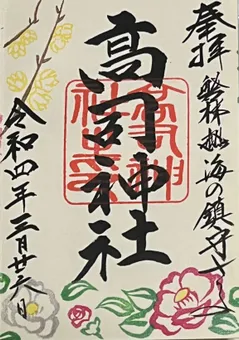 奉拝
海の鎮守
高司神社
令和四年三月廿六日